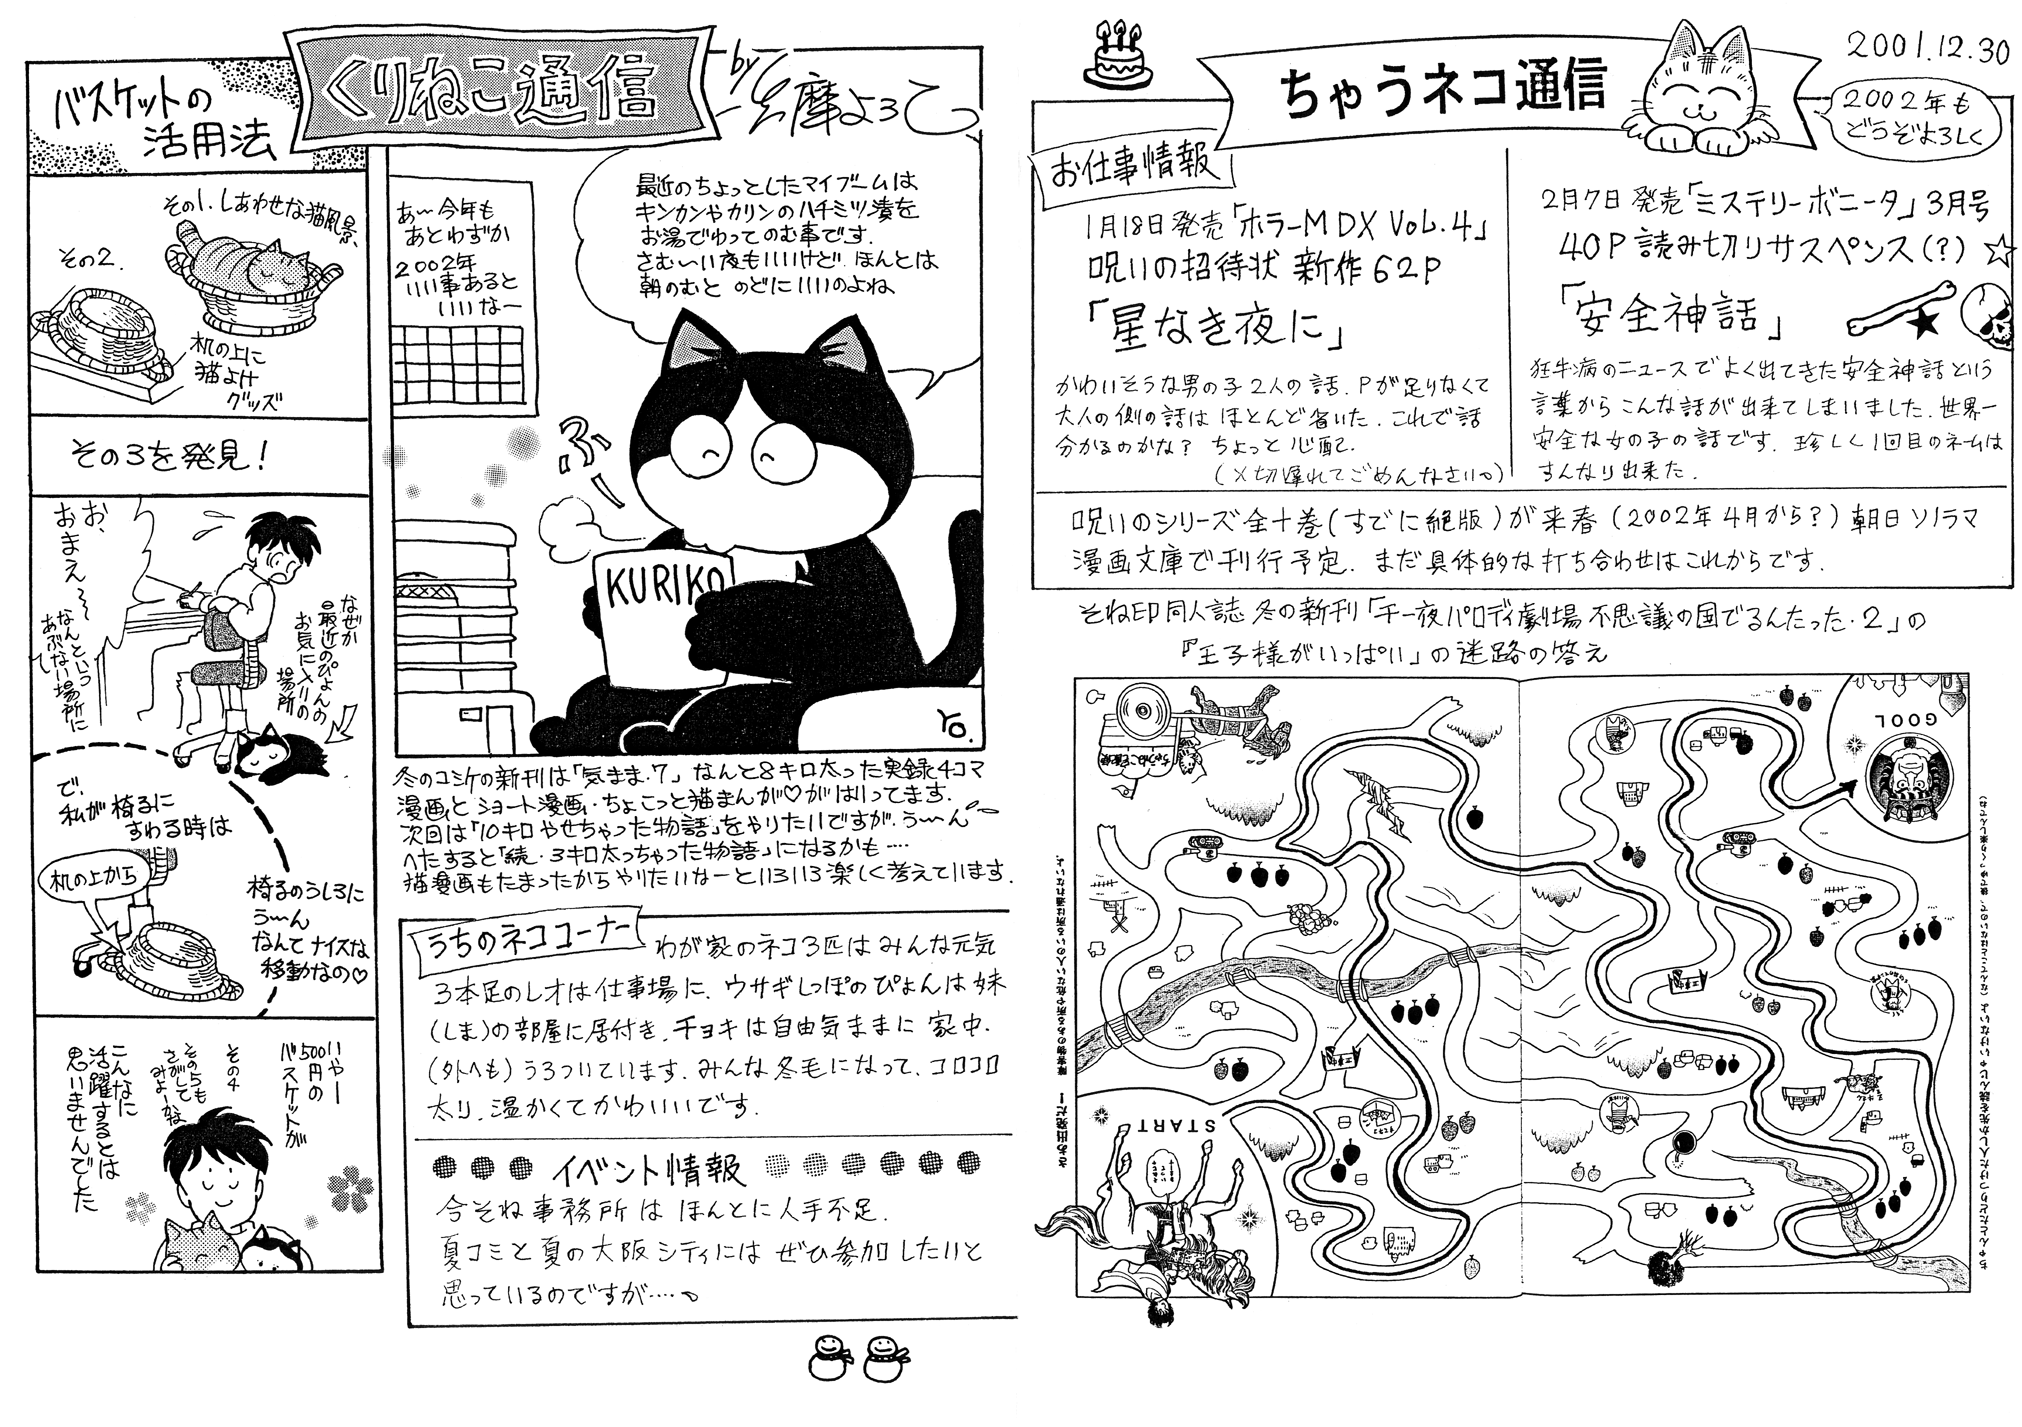 くりねこ通信
by 志摩ようこ
バスケットの
活用法
その1.しあわせな猫風景、
その2.
机の上に
猫よけ
グッズ
その3を発見！
お、
おまえ〜
なんという
あぶない場所に
なぜか
最近のぴょんの
お気に入りの
場所
で、
私が椅子に
すわる時は
机の上から
椅子のうしろに
う〜ん
なんてナイスな
移動なの♡
いやー
500円の
バスケットが
こんなに
活躍するとは
思いませんでした
その4
そのうちも
さがして
みよーかな
あ〜今年も
あとわずか
2002年
いい事あると
いいなー
最近のちょっとしたマイブームは
キンカンやカリンのハチミツ漬を
お湯でわってのむ事です.
さむ〜い夜もいいけど.ほんとは
朝のむと のどにいいのよね、
ふーー
KURIKO
YO.
冬のコミケの新刊は「気まま・7」なんと8キロ太った実録4コマ
漫画と ショート漫画・ちょこっと猫まんが♡がはいってます.
次回は「10キロやせちゃった物語」をやりたいですが.う〜ん
へたすると「続・3キロ太っちゃった物語」になるかも….
猫漫画もたまったからやりたいなーといろいろ楽しく考えています.
うちのネココーナー
わが家のネコ3匹はみんな元気
3本足のレオは仕事場に、ウサギしっぽのぴょんは妹
(しま)の部屋に居付き、チョキは自由気ままに家中.
(外へも)うろついています.みんな冬毛になって、コロコロ
太り、温かくてかわいいです.
イベント情報
今そね事務所は ほんとに人手不足.
夏コミと夏の大阪シティには ぜひ参加したいと
思っているのですが….。
2001.12.30
ちゃうネコ通信
2002年も
どうぞよろしく
お仕事情報
1月18日発売「ホラーM DX VoL.4」
呪いの招待状 新作62P
「星なき夜に」
かわいそうな男の子2人の話.Pが足りなくて
大人の側の話は ほとんど省いた.これで話
分かるのかな？ ちょっと心配.
(〆切遅れてごめんなさい。)
2月7日発売「ミステリーボニータ」3月号
40P読み切りサスペンス(?)☆
「安全神話」
狂牛病のニュースでよく出てきた安全神話という
言葉から こんな話が出来てしまいました.世界一
安全な女の子の話です.珍しく1回目のネームは
すんなり出来た.
呪いのシリーズ全十巻(すでに絶版)が来春(2002年4月から？)朝日ソノラマ
漫画文庫で刊行予定.まだ具体的な打ち合わせはこれからです.
そね印同人誌 冬の新刊「千一夜パロディ劇場 不思議の国でるんたった・2」の
『王子様がいっぱい」の迷路の答え
GOOL
START
さあ出発だー！ 障害物のある所や危ない人のいる所は通れないよ。
ちゃんとたどりつけた人しか先を読んじゃいけないよ(なんてことはないので、後でゆっくり楽しんでね)